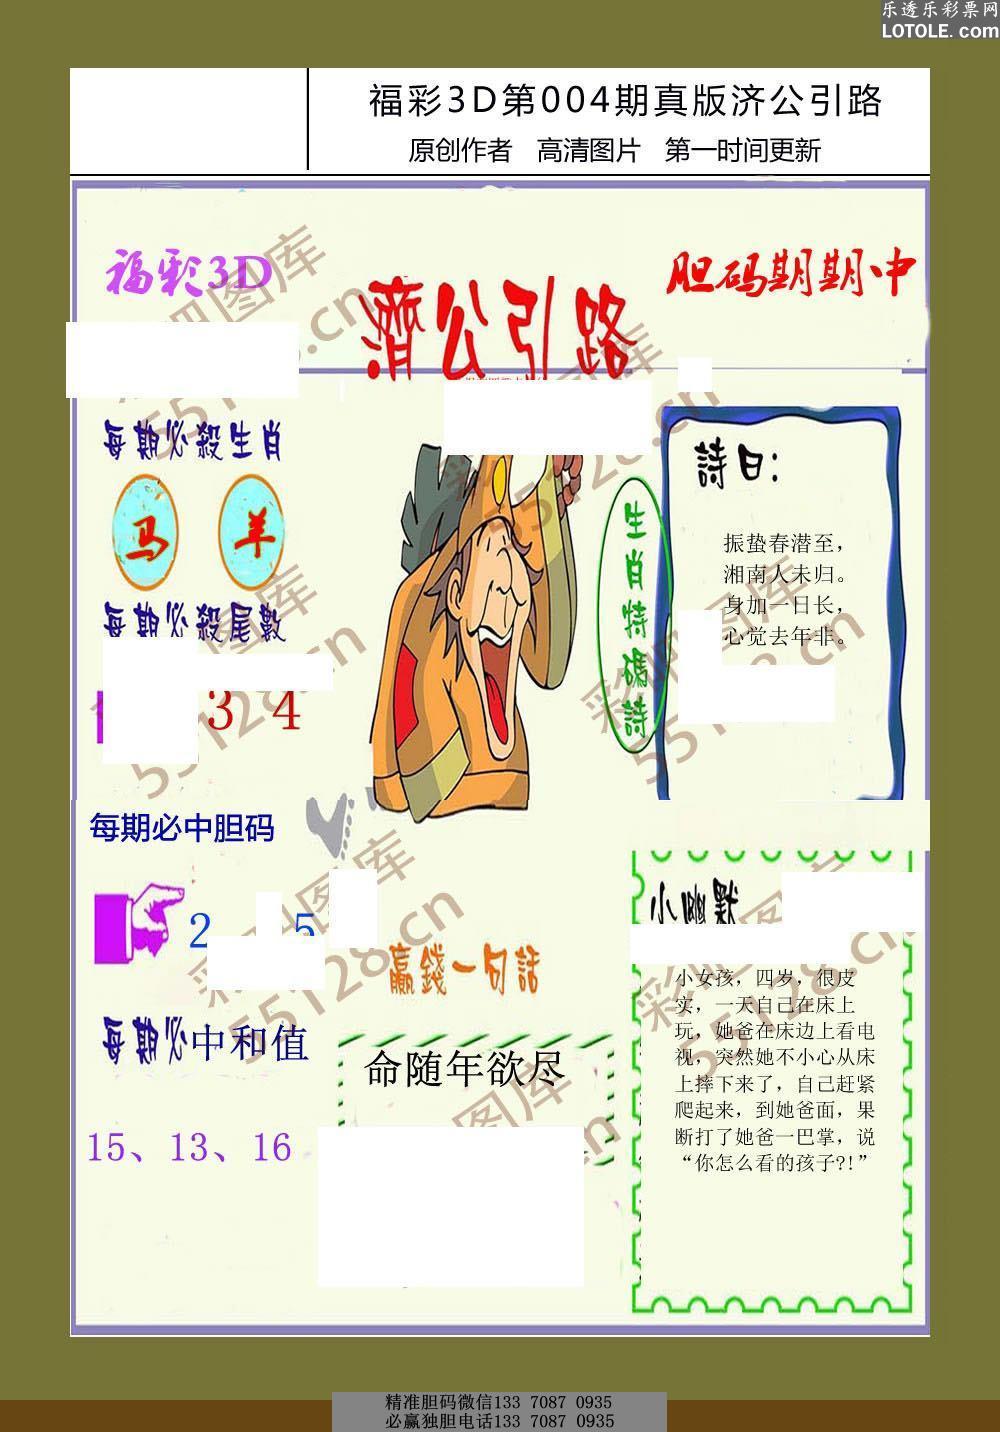 乐透乐彩票网
LOTOLE.com
福彩3D第004期真版济公引路
原创作者 高清图片 第一时间更新
福彩3D
濟公引路
胆码期期中
每期必殺生肖
马 羊
每期必殺尾數
3 4
每期必中胆码
2 5
每期必中和值
15、13、16
生肖特碼詩
詩曰:
振蛰春潜至，
湘南人未归。
身加一日长，
心觉去年非。
贏錢一句話
命随年欲尽
小幽默
小女孩，四岁，很皮
实，一天自己在床上
玩，她爸在床边上看电
视，突然她不小心从床
上摔下来了，自己赶紧
爬起来，到她爸面，果
断打了她爸一巴掌，说
“你怎么看的孩子?!”
彩吧图库
55128.cn
精准胆码微信133 7087 0935
必赢独胆电话133 7087 0935